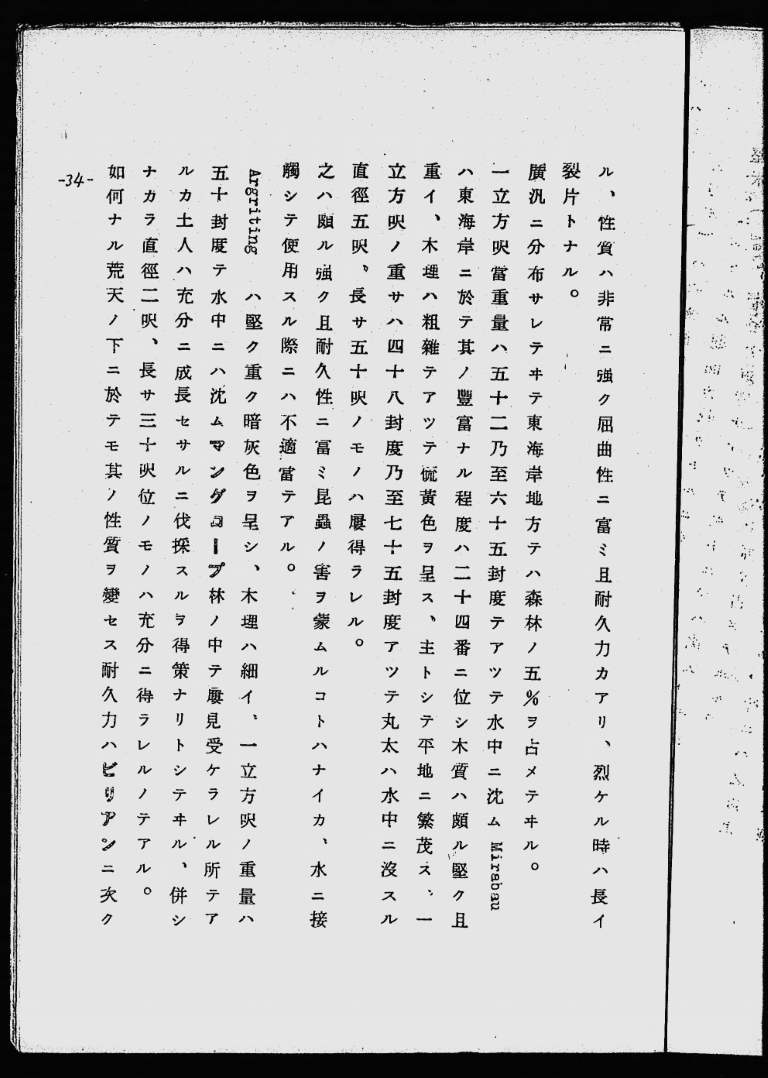 ル、性質ハ非常ニ強ク屈曲性ニ富ミ且耐久力カアリ、烈ケル時ハ長イ
裂片トナル。
廣汎ニ分布サレテヰテ東海岸地方テハ森林ノ五%ヲ占メテヰル。
一立方呎當重量ハ五十二乃至六十五封度テアツテ水中ニ沈ム Mirabau
ハ東海岸ニ於テ其ノ豐富ナル程度ハ二十四番ニ位シ木質ハ頗ル堅ク且
重イ、木理ハ粗雜テアツテ硫黃色ヲ呈ス、主トシテ平地ニ繁茂ス、一
立方呎ノ重サハ四十八封度乃至七十五封度アツテ丸太ハ水中ニ沒スル
直徑五呎、長サ五十呎ノモノハ屢得ラレル。
之ハ頗ル強ク且耐久性ニ富ミ昆蟲ノ害ヲ蒙ムルコトハナイカ、水ニ接
觸シテ使用スル際ニハ不適當テアル。
Argriting ハ堅ク重ク暗灰色ヲ呈シ、木理ハ細イ、一立方呎ノ重量ハ
五十封度テ水中ニハ沈ムマングローブ林ノ中テ屢見受ケラレル所テア
ルカ土人ハ充分ニ成長セサルニ伐採スルヲ得策ナリトシテヰル、併シ
ナカラ直徑二呎、長サ三十呎位ノモノハ充分ニ得ラレルノテアル。
如何ナル荒天ノ下ニ於テモ其ノ性質ヲ變セス耐久力ハビリアンニ次ク
-34-